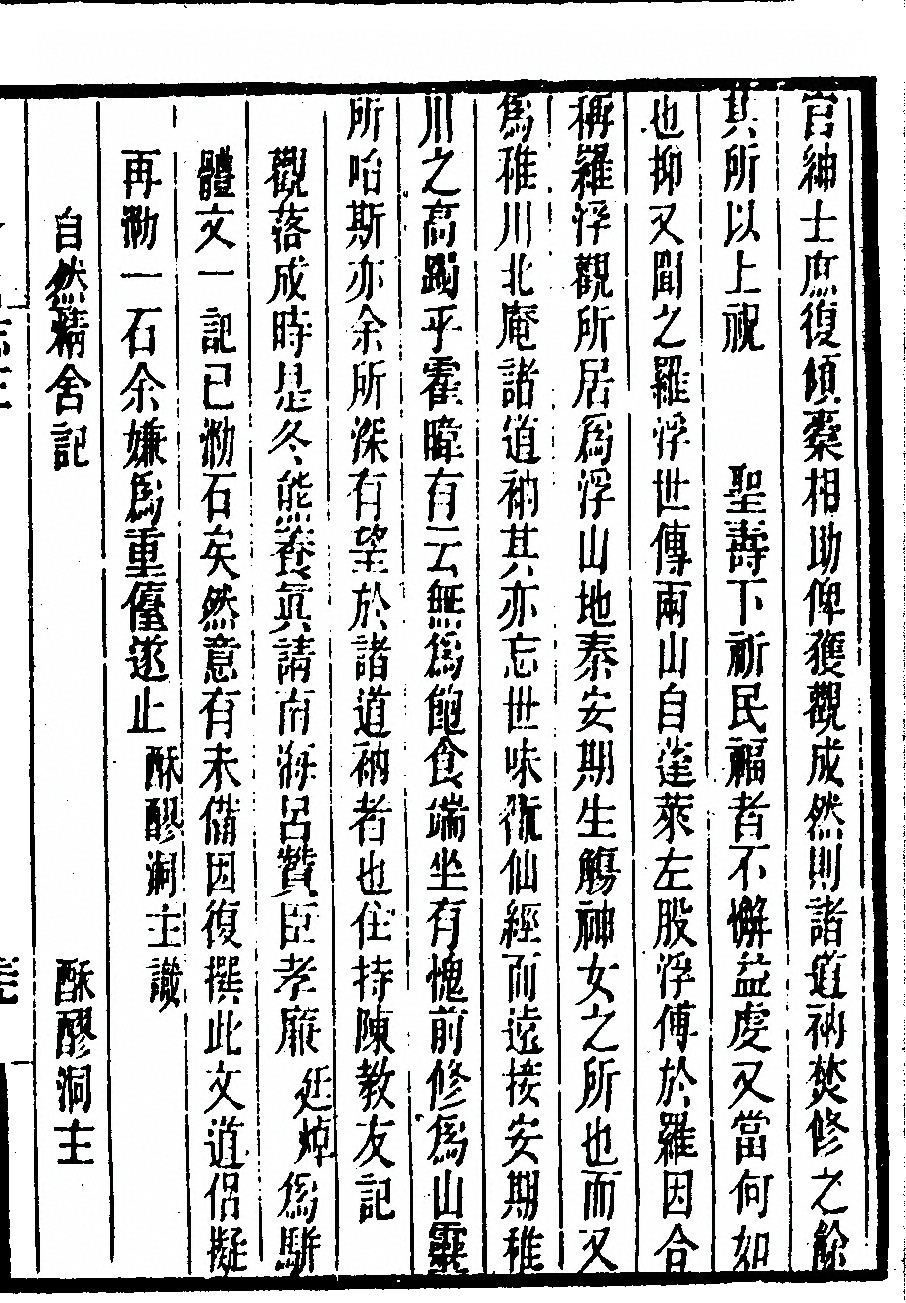 官紳士庶復傾橐相助俾獲觀成然則諸道衲焚修之餘
其所以上祝 聖壽下祈民福者不懈益虔又當何如
也抑又聞之羅浮世傳兩山自蓬萊左股浮傅於羅因合
稱羅浮觀所居爲浮山地泰安期生觴神女之所也而又
爲稚川北庵諸道衲其亦忘世味翫仙經而遠接安期稚
川之高躅乎霍暐有云無爲飽食端坐有愧前修爲山靈
所咍斯亦余所深有望於諸道衲者也住持陳教友記
觀落成時是冬熊養眞請南海呂贊臣孝廉廷焯爲駢
體文一記已泐石矣然意有未備因復撰此文道侶擬
再泐一石余嫌爲重儓遂止酥醪洞主識
自然精舍記 酥醪洞主